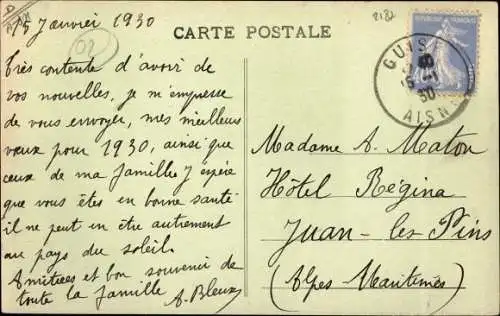 15 Janvier 1930
02
2182
CARTE POSTALE
REPUBLIQUE FRANÇAISE
GUISE
15 -1
30
AISNE
Très contente d'avoir de
vos nouvelles, je m'empresse
de vous envoyer, mes meilleurs
vœux pour 1930, ainsi que
ceux de ma famille. J'espère
que vous êtes en bonne santé
il ne peut en être autrement
au pays du soleil.
Amitiées et bon souvenir de
toute la famille
A. Bleux
Madame A. Maton
Hôtel Régina
Juan-les Pins
(Alpes Maritimes)